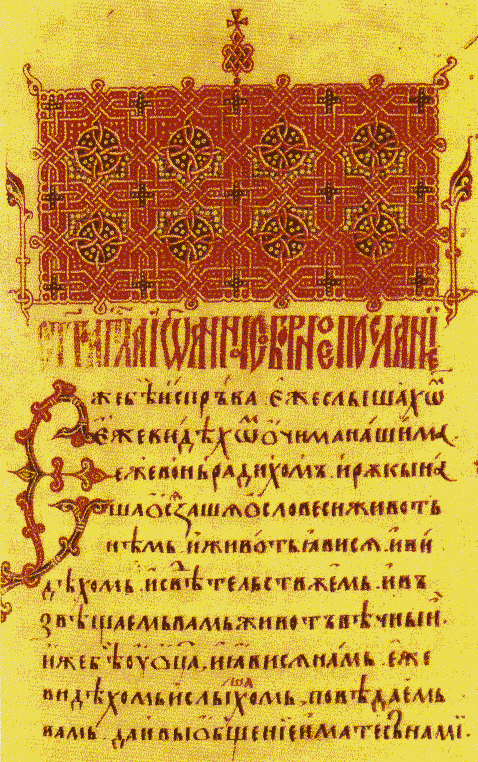 ст҃го ап҃ла їѡанна соборное посланїе
Єже бѣ испръва еже слышахѡⷨ
еже видѣхѡⷨ очима нашима.
еже вонь радихомъ. и рꙋкы на
ша осѧзашѧ ѡ словеси животь
нѣмь. и животь ꙗвисѧ. и ви
дѣхомь. и свѣтельствꙋемь. и въ
звѣщаемь вамь животъ вѣчныи.
иже бѣ ꙋ ѻц҃а. и ꙗвисѧ намь. еже
видѣхомь и слышахомь. повѣдаемь
вамь. да и вы общенїе имате съ нами.